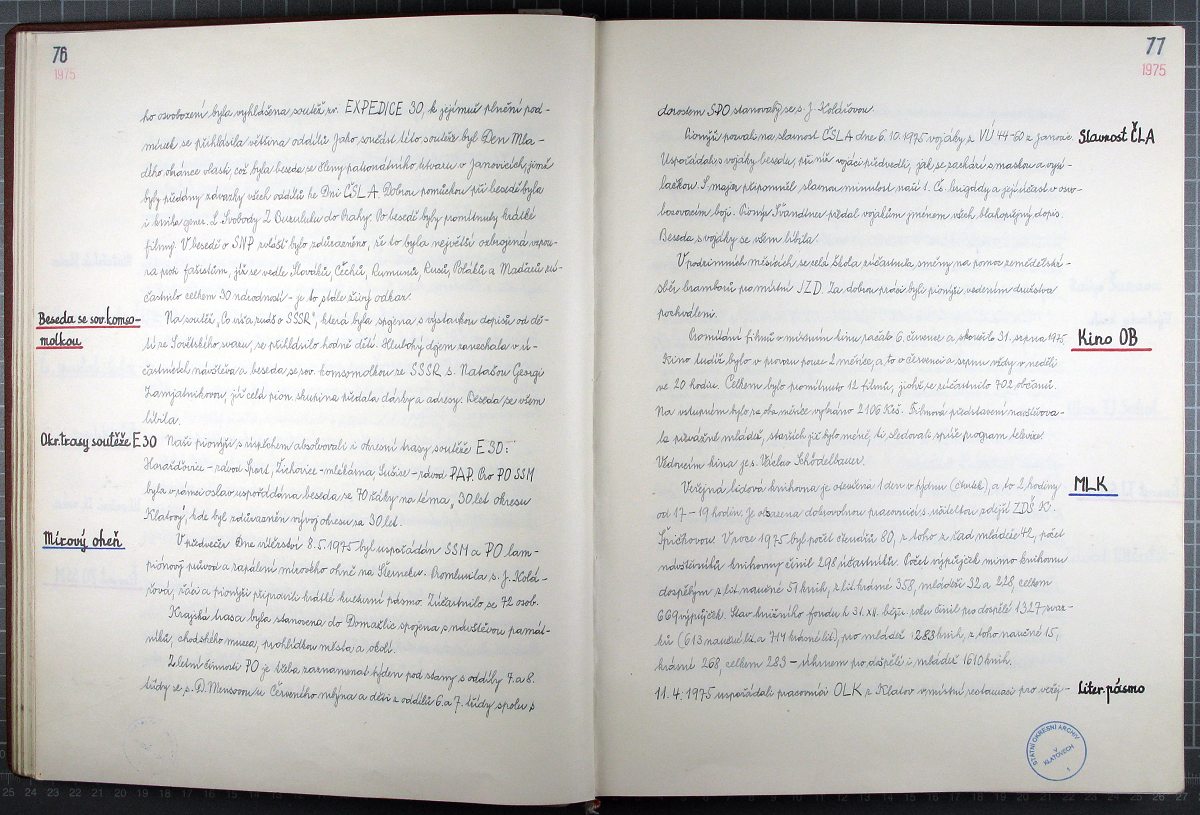 76
1975
ho osvobození byla vyhlášena soutěž zv. EXPEDICE 30, k jejímuž plnění pod-
mínek se přihlásila většina oddílů. Jako součást této soutěže byl Den Mla-
dého obránce vlasti, což byla beseda se členy patronátního útvaru v Janovicích, jimž
byly předány závazky všech oddílů ke Dni ČSLA. Dobrou pomůckou při besedě byla
i kniha gener. L. Svobody Z Buzuluku do Prahy. Po besedě byly promítnuty krátké
filmy. V besedě o SNP zvlášť bylo zdůrazněno, že to byla největší ozbrojená vzpou-
ra proti fašistům, jíž se vedle Slováků, Čechů, Rumunů, Rusů, Poláků a Maďarů zú-
častnilo celkem 30 národností - je to stále živý odkaz.
Beseda se sov. komso-
molkou
Na soutěž „Co víš a znáš o SSSR", která byla spojena s výstavkou dopisů od dě-
tí ze Sovětského svazu, se přihlásilo hodně dětí. Hluboký dojem zanechala v ú-
častnících návštěva a beseda se sov. komsomolkou ze SSSR s. Natašou Georgi
Zamjatnikovou, jíž celá pion. skupina předala dárky a adresy. Beseda se všem
líbila.
Okr. trasy soutěže E 30
Naši pionýři s úspěchem absolvovali i okresní trasy soutěže E 30:
Horažďovice - závod Šport, Žichovice - mlékárna, Sušice - závod PAP. Pro PO SSM
byla v rámci oslav uspořádána beseda se 70 žáky na téma „30 let okresu
Klatovy", kde byl zdůrazněn vývoj okresu za 30 let.
Mírový oheň
V předvečer Dne vítězství 8.5.1975 byl uspořádán SSM a PO lam-
pionový průvod a zapálení mírového ohně na Šterneku. Promluvila s. J. Kolá-
řová, žáci a pionýři připravili krátké kulturní pásmo. Zúčastnilo se 72 osob.
Krajská trasa byla stanovena do Domažlic spojena s návštěvou památ-
níků, chodského muzea, prohlídkou města a okolí.
Z letní činnosti PO je třeba zaznamenat týden pod stany s oddíly 7. a 8.
třídy se s. D. Mensovou u Červeného mlýna a děti z oddílů 6. a 7. třídy spolu s
77
1975
dorostem SPO stanovaly se s. J. Kolářovou.
Slavnost ČLA
Pionýři pozvali na slavnost ČSLA dne 6.10.1975 vojáky z VÚ 44-60 z Janovic.
Uspořádali s vojáky besedu, při níž vojáci předvedli, jak se zachází s maskou a vysí-
lačkou. S. major připomněl slavnou minulost naší 1. Čs. brigády a její účast v osvo-
bozovacím boji. Pionýr Švandtner předal vojákům jménem všech blahopřejný dopis.
Beseda s vojáky se všem líbila.
V podzimních měsících se celá škola zúčastnila směny na pomoc zemědělství -
sběr brambor pro místní JZD. Za dobrou práci byli pionýři vedením družstva
pochváleni.
Kino OB
Promítání filmů v místním kinu začalo 6. července a skončilo 31. srpna 1975.
Kino tudíž bylo v provozu pouze 2 měsíce, a to v červenci a srpnu vždy v neděli
ve 20 hodin. Celkem bylo promítnuto 12 filmů, jichž se zúčastnilo 702 občanů.
Na vstupném bylo za oba měsíce vybráno 2106 Kčs. Filmová představení navštěvova-
la převážně mládež, starších již bylo méně, ti sledovali spíše program televize.
Vedoucím kina je s. Václav Schödelbauer.
MLK
Veřejná lidová knihovna je otevřena 1 den v týdnu (čtvrtek), a to 2 hodiny
od 17 - 19 hodin. Je obsazena dobrovolnou pracovnicí s. učitelkou zdejší ZDŠ K.
Špičkovou. V roce 1975 byl počet čtenářů 80, z toho z řad mládeže 42, počet
návštěvníků knihovny činil 298 účastníků. Počet výpůjček mimo knihovnu
dospělým z lit. naučné 51 knih, z lit. krásné 358, mládeži 32 a 228, celkem
669 výpůjček. Stav knižního fondu k 31. XII. běž. roku činil pro dospělé 1327 svaz-
ků (613 naučné lit. a 714 krásné lit.), pro mládež 283 knih, z toho naučné 15,
krásné 268, celkem 283 - úhrnem pro dospělé i mládež 1610 knih.
Liter. pásmo
11. 4. 1975 uspořádali pracovníci OLK z Klatov v místní restauraci pro veřej-
STÁTNÍ OKRESNÍ ARCHIV
V
KLATOVECH
1